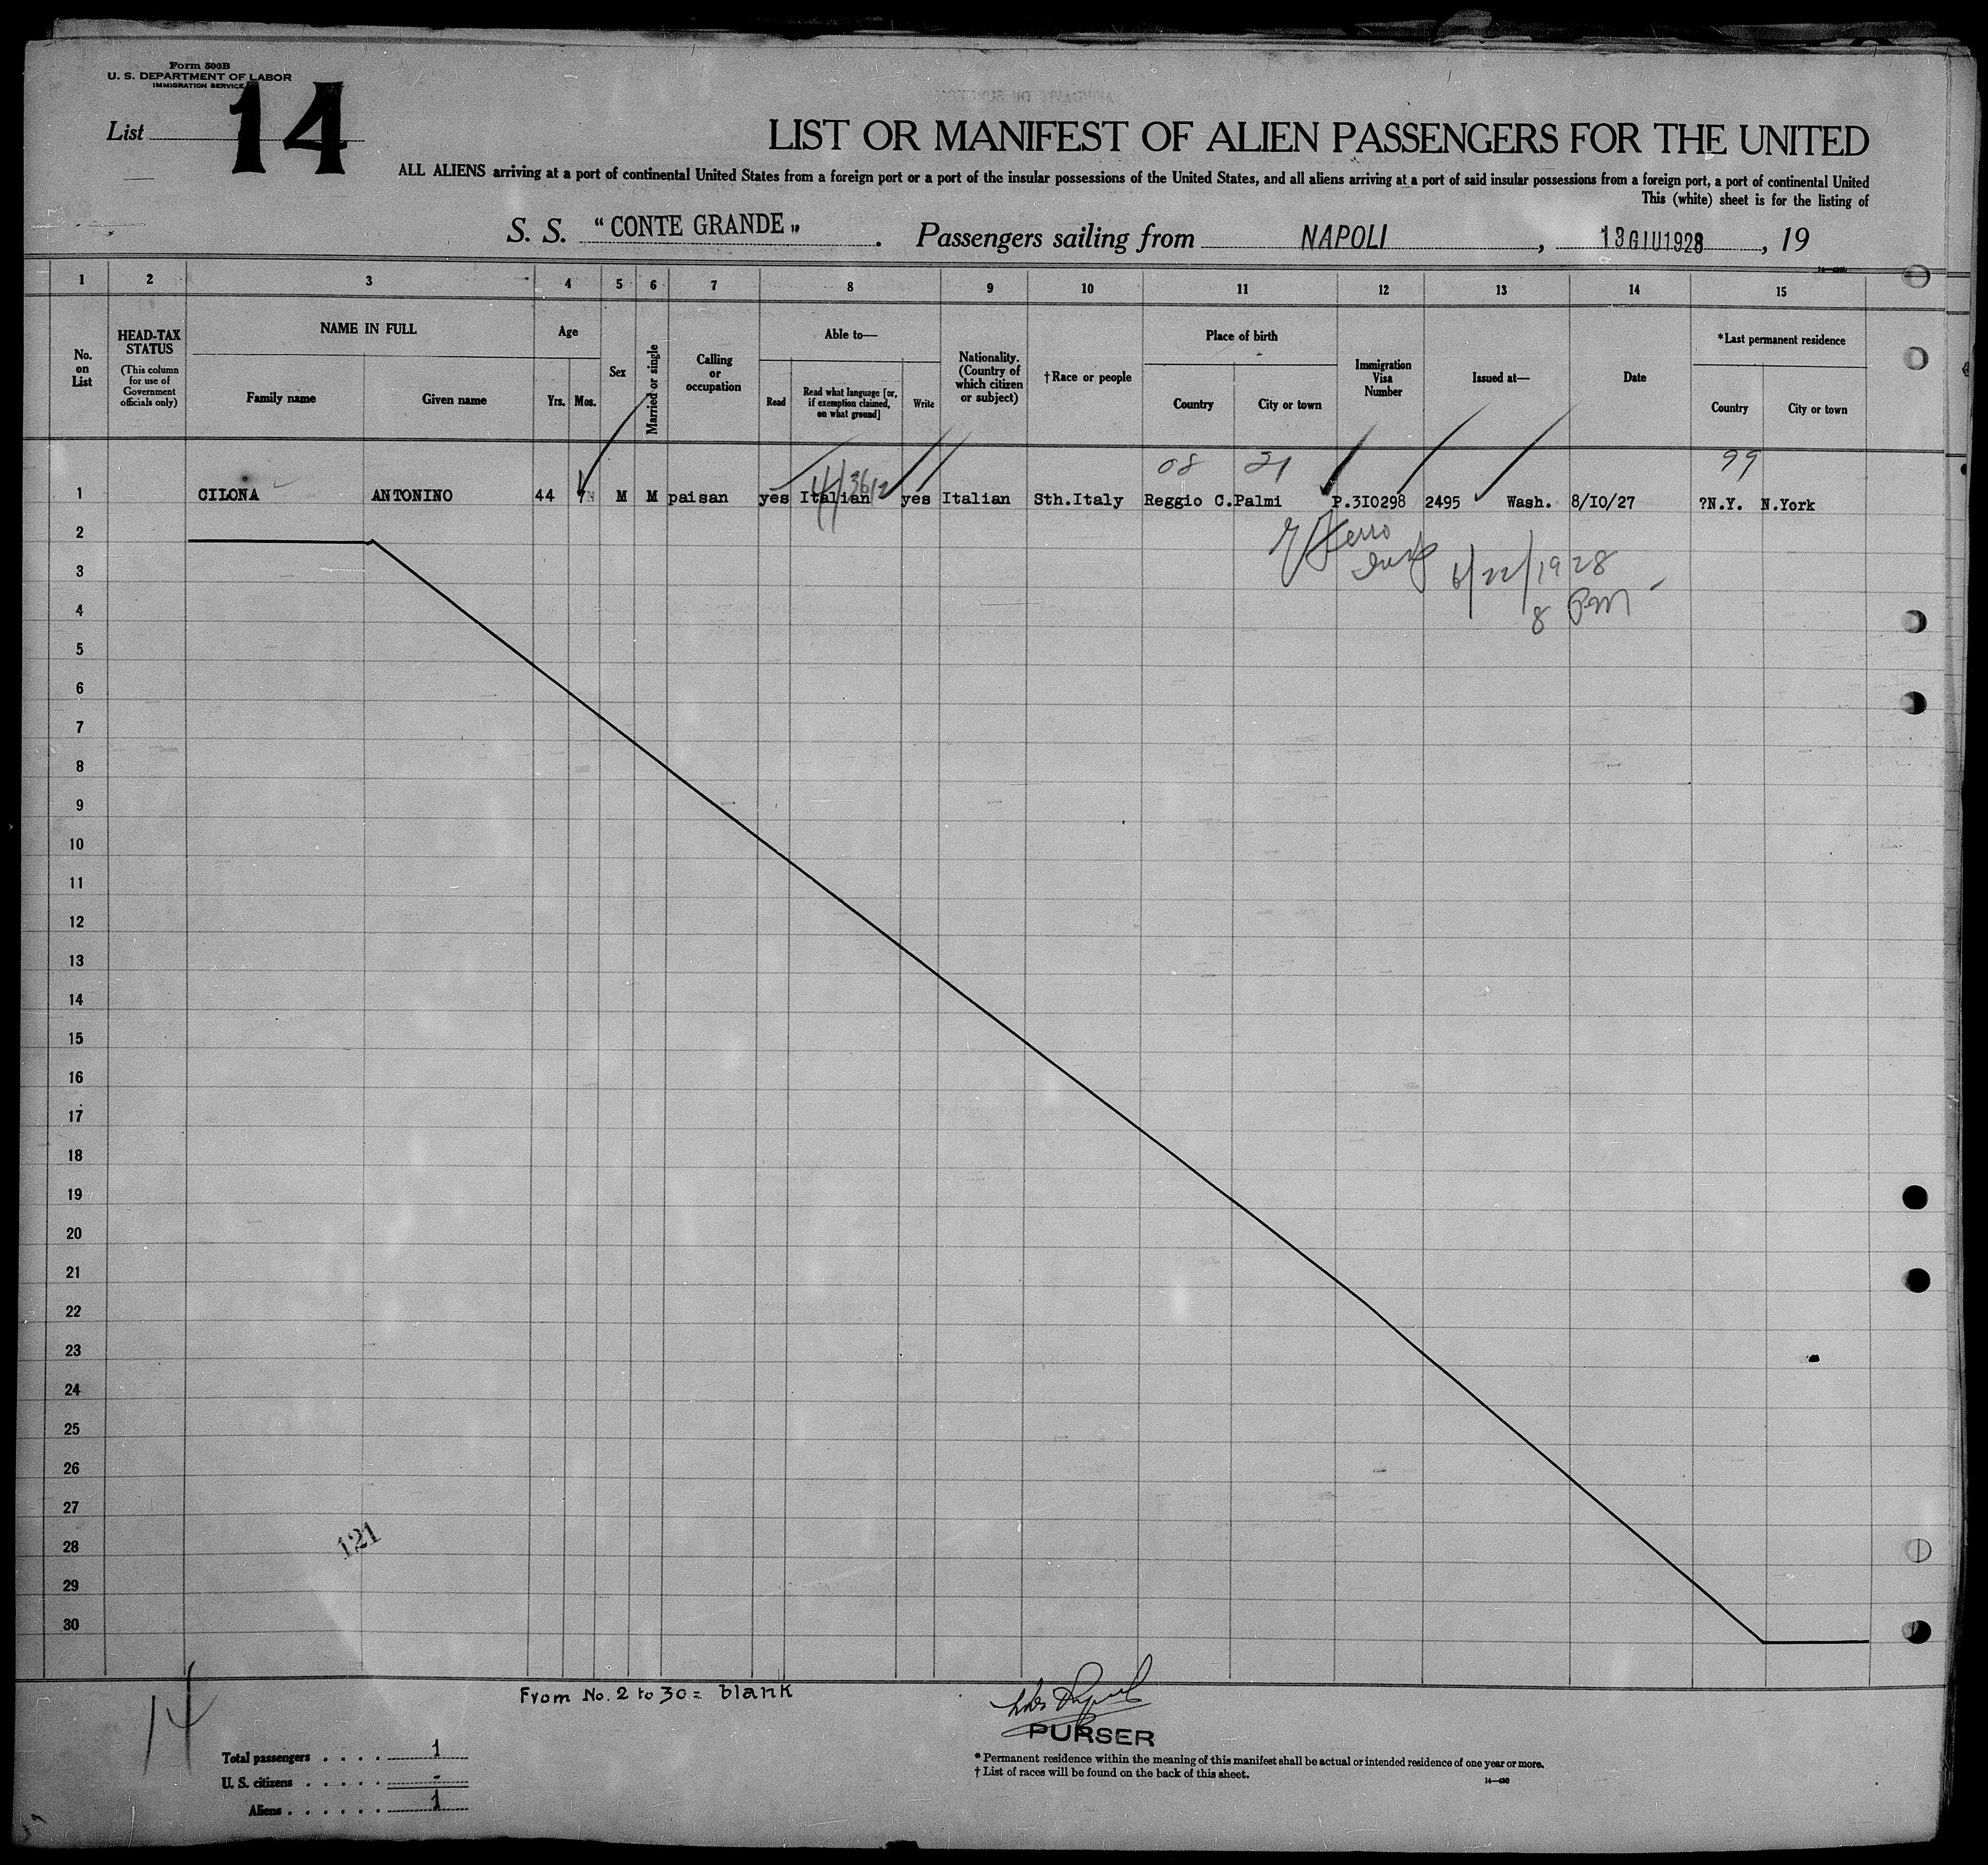 Form 500B
U. S. DEPARTMENT OF LABOR
IMMIGRATION SERVICE
List 14
LIST OR MANIFEST OF ALIEN PASSENGERS FOR THE UNITED
ALL ALIENS arriving at a port of continental United States from a foreign port or a port of the insular possessions of the United States, and all aliens arriving at a port of said insular possessions from a foreign port, a port of continental United
This (white) sheet is for the listing of
S. S. "CONTE GRANDE". Passengers sailing from NAPOLI, 13 GIU 1928, 19
1 2 3 4 5 6 7 8 9 10 11 12 13 14 15
No. on List
HEAD-TAX STATUS
(This column for use of Government officials only)
NAME IN FULL
Family name Given name
Age
Yrs. Mos.
Sex
Married or single
Calling or occupation
Able to—
Read
Read what language [or, if exemption claimed, on what ground]
Write
Nationality. (Country of which citizen or subject)
†Race or people
Place of birth
Country City or town
Immigration Visa Number
Issued at—
Date
*Last permanent residence
Country City or town
08 21 99
1 CILONA ANTONINO 44 M M paisan yes Italian yes Italian Sth.Italy Reggio C.Palmi P.3I0298 2495 Wash. 8/I0/27 ?N.Y. N.York
2
6/22/1928
3
8 PM
4
5
6
7
8
9
10
11
12
13
14
15
16
17
18
19
20
21
22
23
24
25
26
27
121
28
29
30
From No. 2 to 30 = blank
14
PURSER
Total passengers . . . . 1
U. S. citizens . . . . . -
Aliens . . . . . . 1
* Permanent residence within the meaning of this manifest shall be actual or intended residence of one year or more.
† List of races will be found on the back of this sheet.